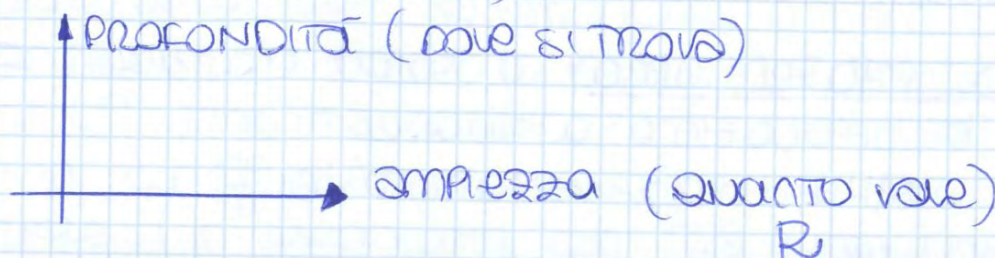 PROFONDITÀ (DOVE SI TROVA)
AMPIEZZA (QUANTO VALE)
R